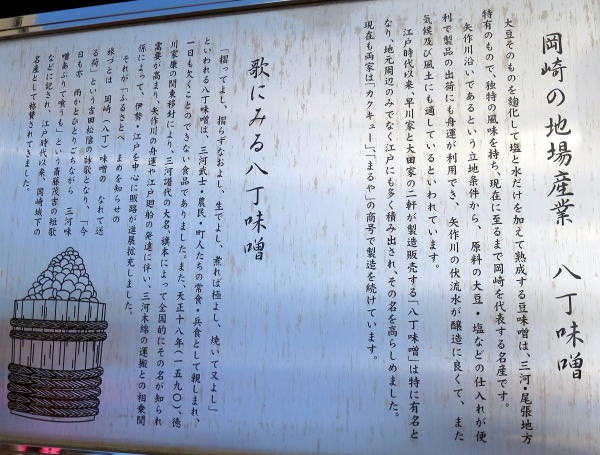 岡崎の地場産業　八丁味噌
大豆そのものを麹化して塩と水だけを加えて熟成する豆味噌は、三河・尾張地方
特有のもので、独特の風味を持ち、現在に至るまで岡崎を代表する名産です。
矢作川沿いであるという立地条件から、原料の大豆・塩などの仕入れが便
利で製品の出荷にも舟運が利用でき、矢作川の伏流水が醸造に良くて、また
気候及び風土にも適しているといわれています。
江戸時代以来、早川家と大田家の二軒が製造販売する「八丁味噌」は特に有名と
なり、地元周辺のみでなく江戸にも多く積み出され、その名を高らしめました。
現在も両家は「カクキュー」、「まるや」の商号で製造を続けています。
歌にみる八丁味噌
「摺ってよし、摺らずなおよし、生でよし、煮れば極よし、焼いて又よし」
といわれる八丁味噌は、三河武士・農民・町人たちの常食・兵食として親しまれ、
一日も欠くことのできない食品でありました。また、天正十八年(一五九〇)、徳
川家康の関東移封により、三河譜代の大名、旗本によって全国的にその名が知られ
需要が高まり、矢作川の舟運や江戸廻船の発達に伴い、三河木綿の運搬との相乗関
係によって、伊勢・江戸を中心に販路が進展拡充しました。
それが「ふるさとへ　まめを知らせの
旅づとは　岡崎(八丁)味噌の　なれて送
る荷」という吉田松陰の詠歌となり、「今
日もか　雨かとひとりごちながら　三河味
噌あぶりて喰うも」という斎藤茂吉の短歌
などに記され、江戸時代以来、岡崎城下の
名産として格賛されてきました。